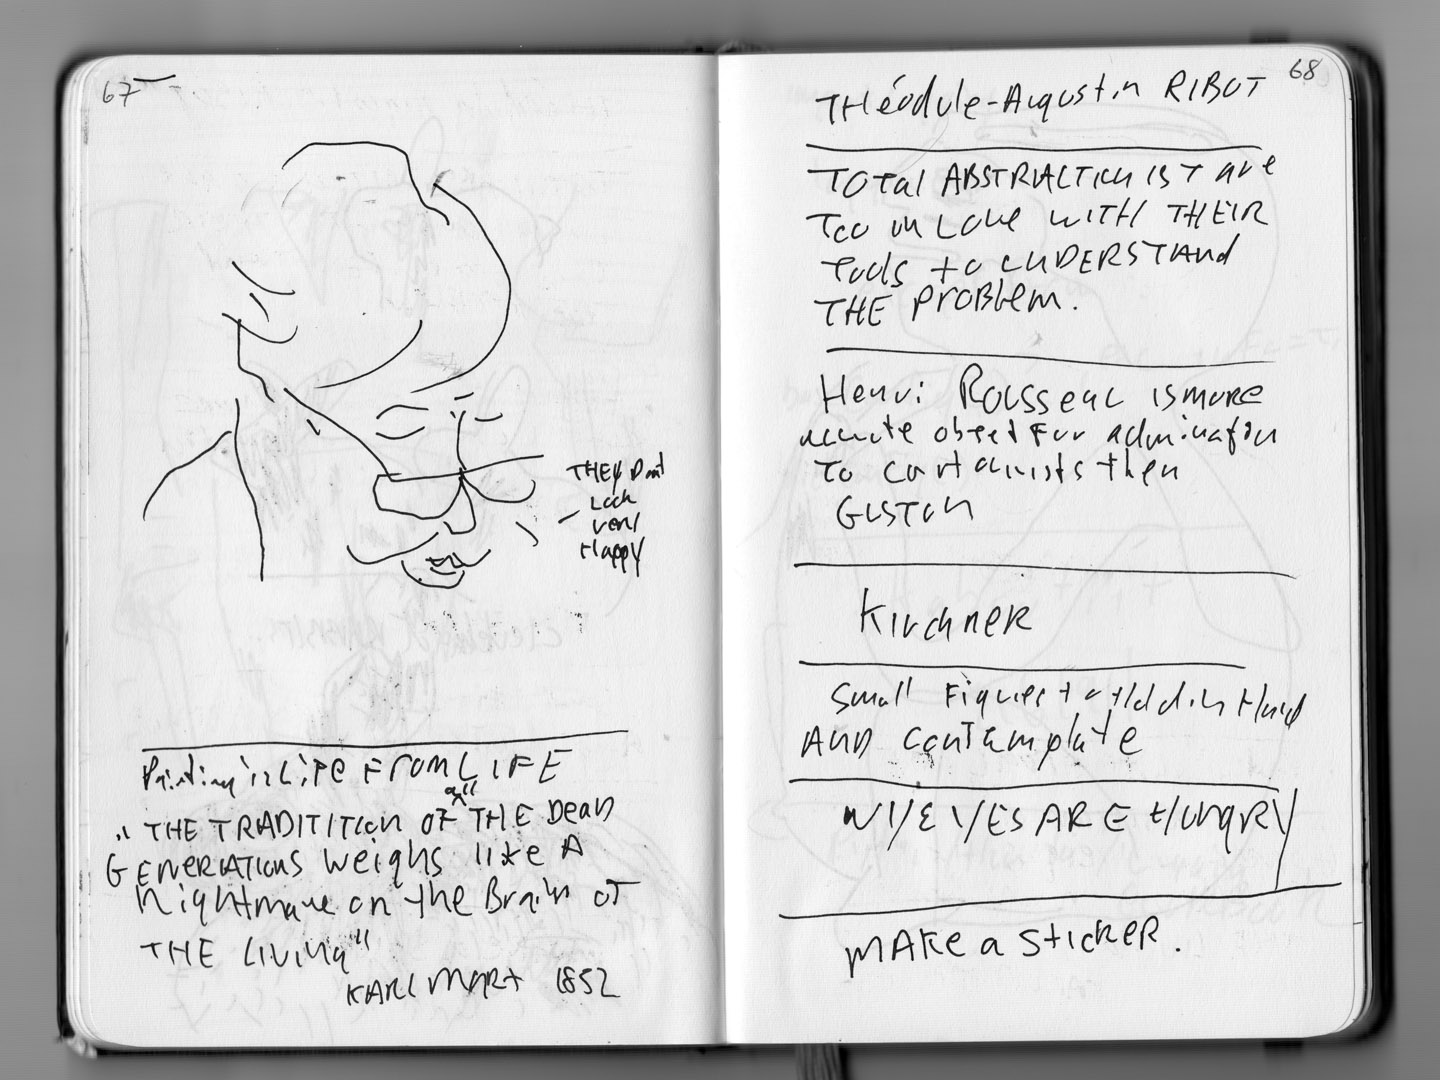 67
THEY Don't
Look
very
Happy
Painting is Life FROM LIFE
"THE TRADITITION OF all THE Dead
GENERATIONS weighs like A
Nightmare on the Brain of
THE Living"
KARL MARX 1852
68
THéodule-Augustin RIBOT
TOTal ABSTRACTIONISTS are
Too in Love WITH THEIR
Tools to UNDERSTAND
THE Problem.
Henri Rousseau is more
acute object For admiration
To cartoonists then
GUSTON
Kirchner
Small Figures to Hold in Hand
AND contemplate
MY EYES ARE HUNGRY
MAKE a STICKER.